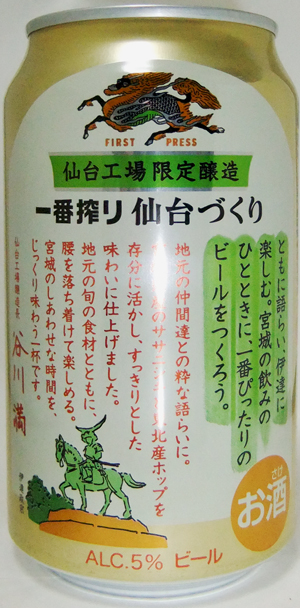 FIRST PRESS
仙台工場限定醸造
一番搾り 仙台づくり
ともに語らい伊達に
楽しむ。宮城の飲みの
ひとときに、一番ぴったりの
ビールをつくろう。
地元の仲間達との粋な語らいに。
ササニシキ 東北産ホップを
存分に活かし、すっきりとした
味わいに仕上げました。
地元の旬の食材とともに、
腰を落ち着けて楽しめる。
宮城のしあわせな時間を、
じっくり味わう一杯です。
仙台工場醸造長
谷川 満
伊達政宗
さけ
お酒
ALC.5% ビール